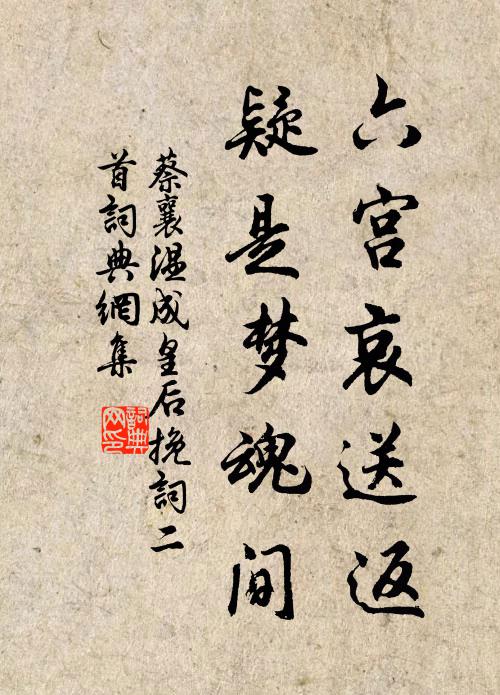 六宫哀送返
疑是梦魂间
蔡襄温成皇后挽詞二
首詞典網集
詞典
网印